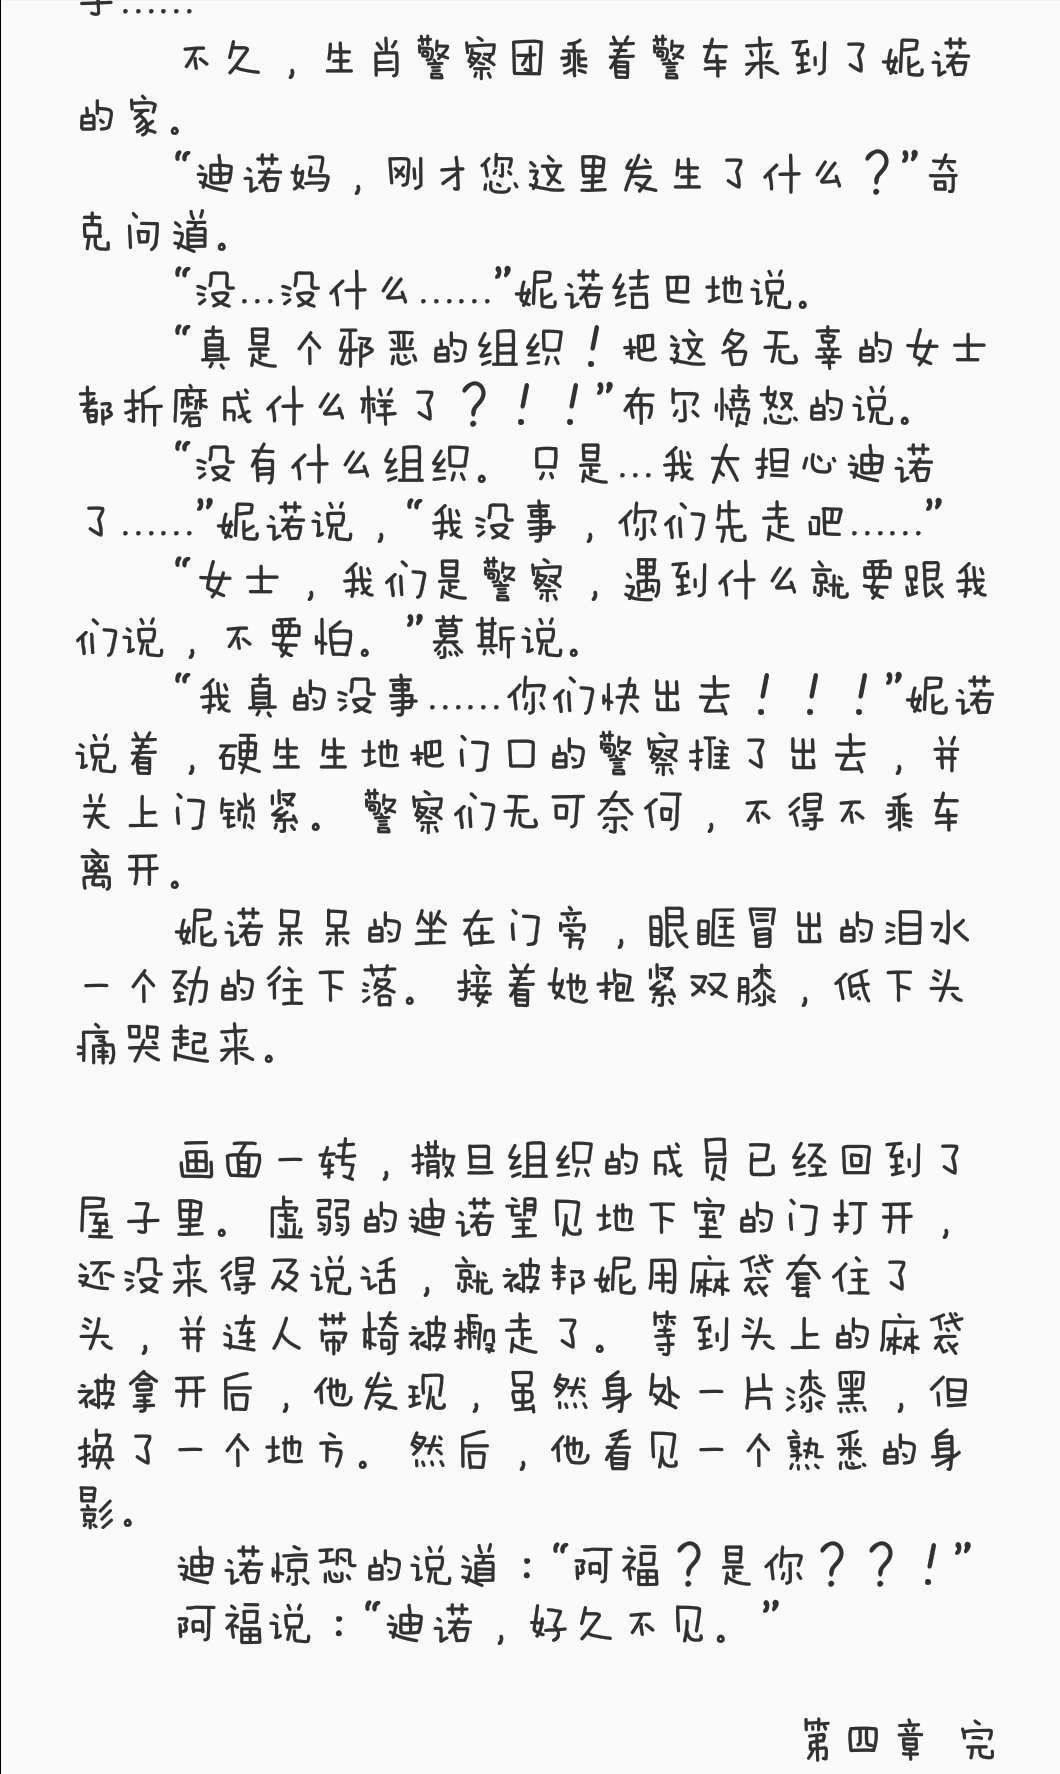 子……
不久，生肖警察团乘着警车来到了妮诺
的家。
“迪诺妈，刚才您这里发生了什么？”奇
克问道。
“没…没什么……”妮诺结巴地说。
“真是个邪恶的组织！把这名无辜的女士
都折磨成什么样了？！！”布尔愤怒的说。
“没有什么组织。只是…我太担心迪诺
了……”妮诺说，“我没事，你们先走吧……”
“女士，我们是警察，遇到什么就要跟我
们说，不要怕。”慕斯说。
“我真的没事……你们快出去！！！”妮诺
说着，硬生生地把门口的警察推了出去，并
关上门锁紧。警察们无可奈何，不得不乘车
离开。
妮诺呆呆的坐在门旁，眼眶冒出的泪水
一个劲的往下落。接着她抱紧双膝，低下头
痛哭起来。
画面一转，撒旦组织的成员已经回到了
屋子里。虚弱的迪诺望见地下室的门打开，
还没来得及说话，就被邦妮用麻袋套住了
头，并连人带椅被搬走了。等到头上的麻袋
被拿开后，他发现，虽然身处一片漆黑，但
换了一个地方。然后，他看见一个熟悉的身
影。
迪诺惊恐的说道：“阿福？是你？？！”
阿福说：“迪诺，好久不见。”
第四章 完